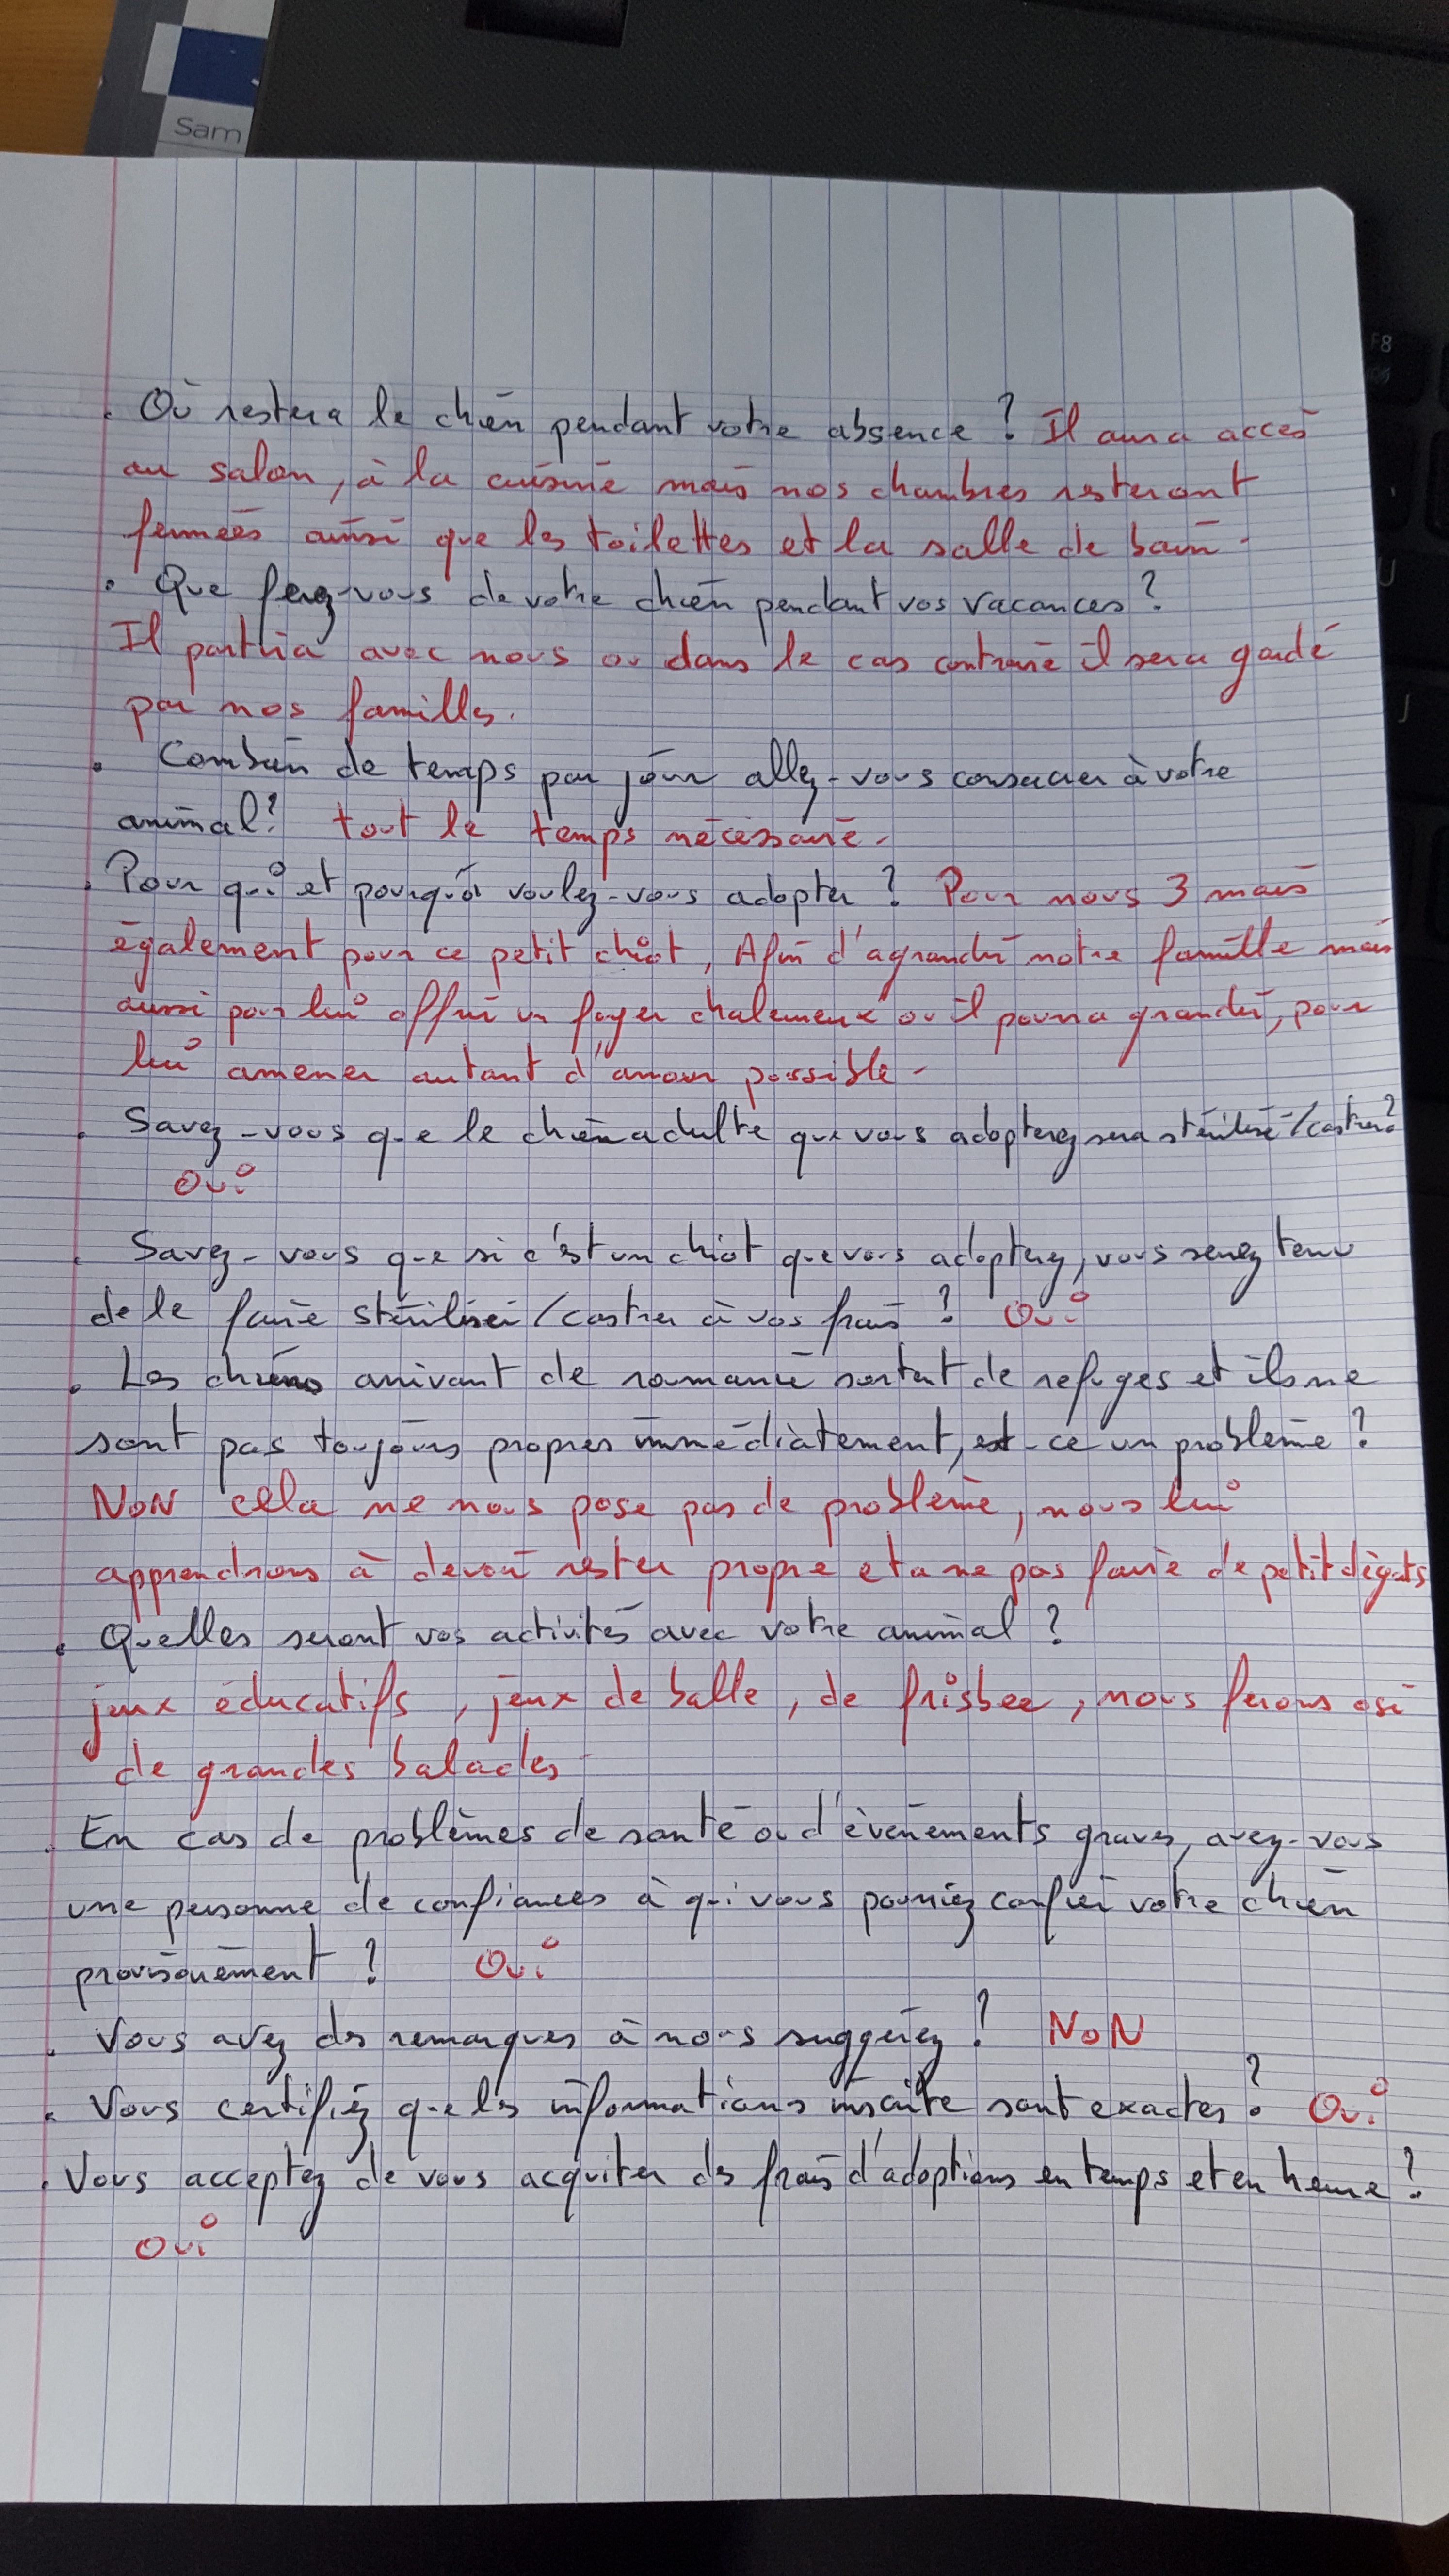 Sam
F8
U
J
. Où restera le chien pendant votre absence ? Il aura accès
au salon, à la cuisine mais nos chambres resteront
fermées ainsi que les toilettes et la salle de bain.
. Que ferez-vous de votre chien pendant vos vacances ?
Il partira avec nous ou dans le cas contraire il sera gardé
par nos familles.
. Combien de temps par jour allez-vous consacrer à votre
animal ? tout le temps nécessaire.
. Pour qui et pourquoi voulez-vous adopter ? Pour nous 3 mais
également pour ce petit chiot, Afin d'agrandir notre famille mais
aussi pour lui offrir un foyer chaleureux ou il pourra grandir, pour
lui amener autant d'amour possible.
. Savez-vous que le chien adulte que vous adopterez sera stérilisé/castrer ?
Oui
. Savez-vous que si c'est un chiot que vous adoptez, vous serez tenu
de le faire stériliser/castrer à vos frais ? Oui
. Les chiens arrivant de roumanie sortent de refuges et ils ne
sont pas toujours propres immédiatement, est-ce un problème ?
NON cela ne nous pose pas de problème, nous lui
apprendrons à devoir rester propre et a ne pas faire de petit dégats
. Quelles seront vos activités avec votre animal ?
jeux éducatifs, jeux de balle, de frisbee, nous ferons
de grandes balades.
. En cas de problèmes de santé ou d'évènements graves, avez-vous
une personne de confiances à qui vous pourriez confier votre chien
provisoirement ? Oui
. Vous avez des remarques à nous suggériez ? NON
. Vous certifiez que les informations inscrite sont exactes ? Oui
. Vous acceptez de vous acquiter des frais d'adoptions en temps et en heure ?
Oui